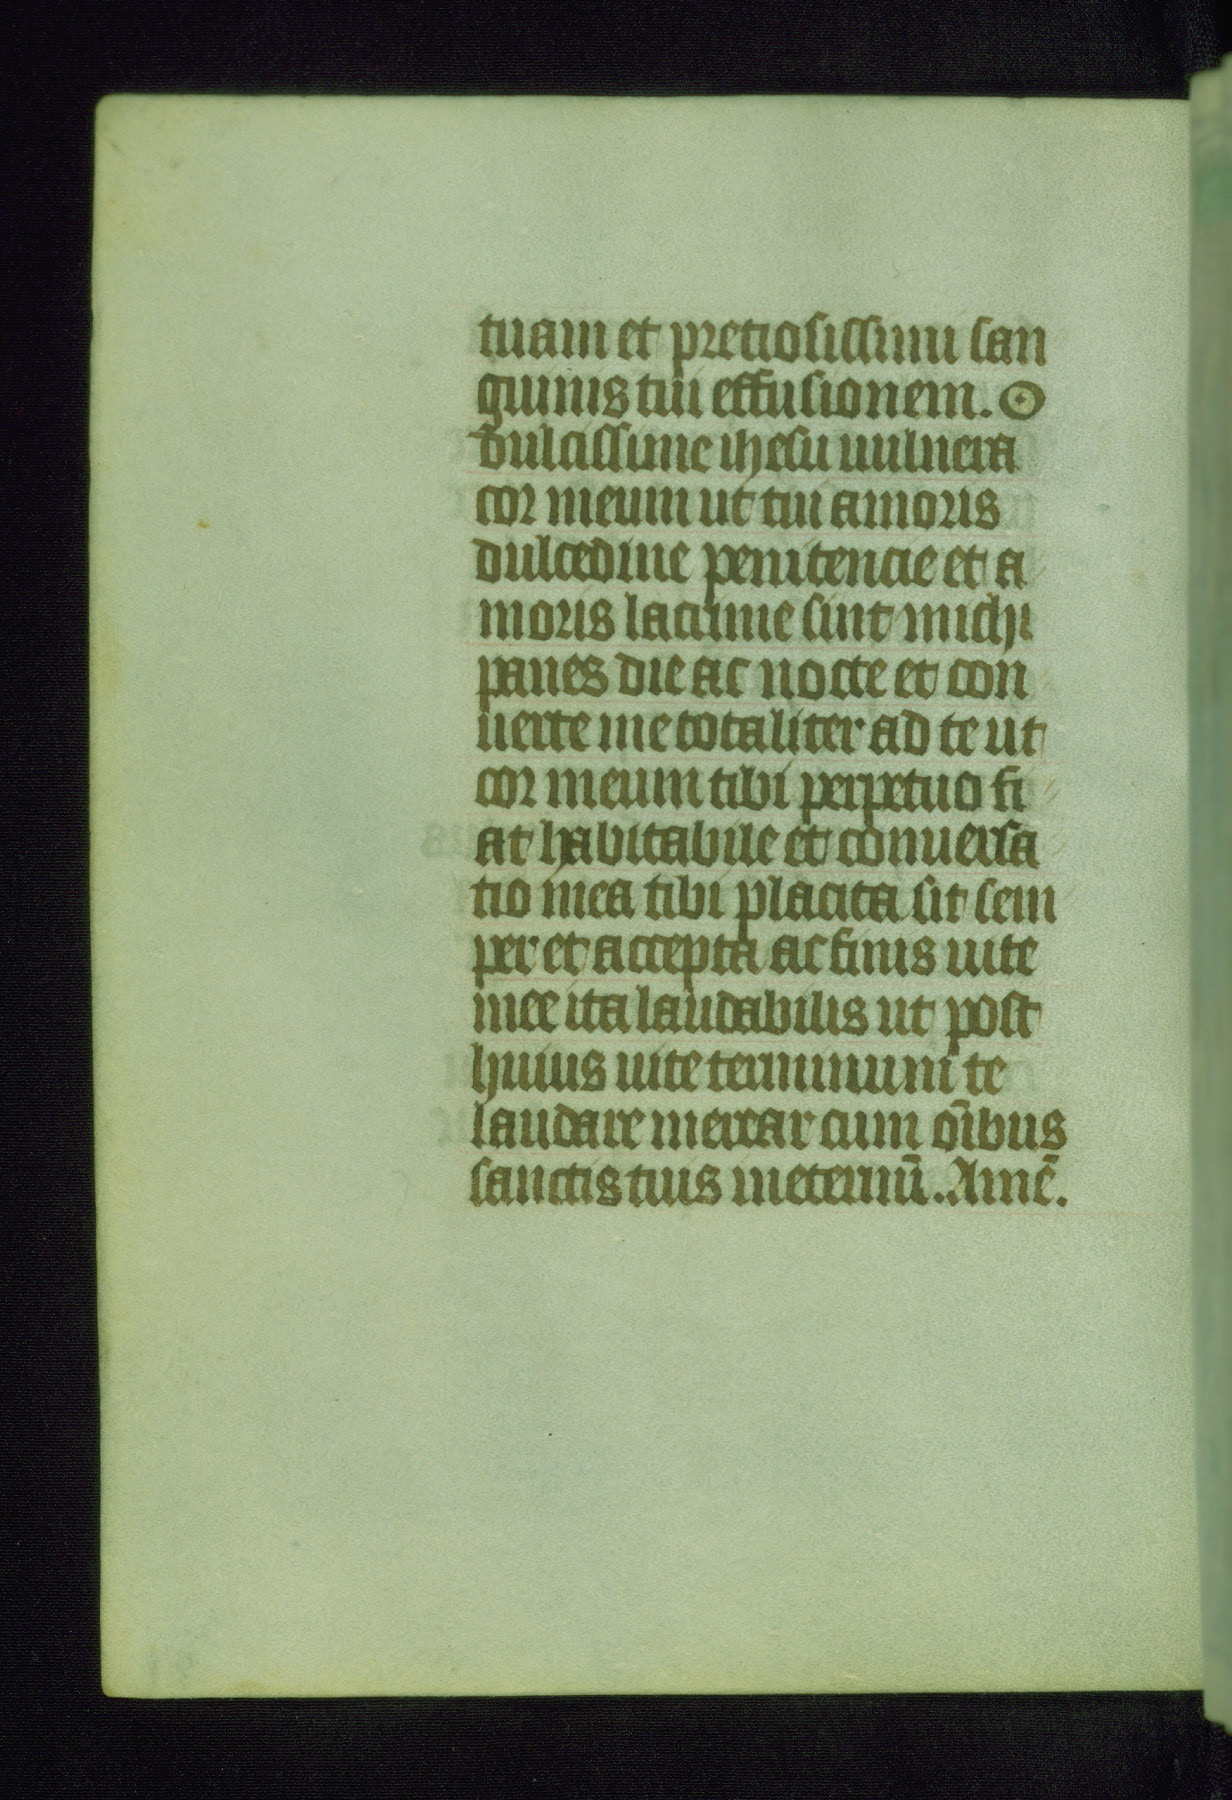 tuam et preciosissimi san
guinis tui effusionem. O
dulcissime ihesu uulnera
cor meum ut tui amoris
dulcedine penitencie et a
moris lacrime sint michi
panes die ac nocte et con
uerte me totaliter ad te ut
cor meum tibi perpetuo fi
at habitabile et conuersa
tio mea tibi placita sit sem
per et accepta ac finis uite
mee ita laudabilis ut post
huius uite terminum te
laudare merear cum oībus
sanctis tuis ineternū. Amē.